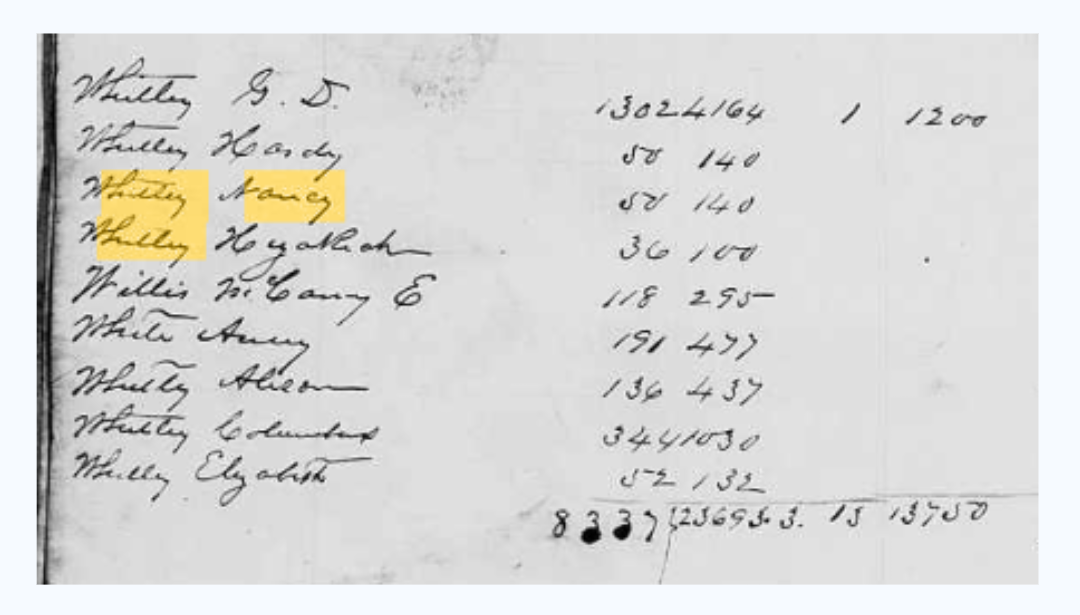 Whitley G. D. 1302 4164 1 1200
Whitley Hardy 50 140
Whitley Nancy 50 140
Whitley Hezakiah 36 100
Willis McCamy E 118 295
White Avery 191 477
Whitley 136 437
Whitley Columbus 344 1030
Whitley Elizabeth 52 132
8337 23693.3. 15 13750